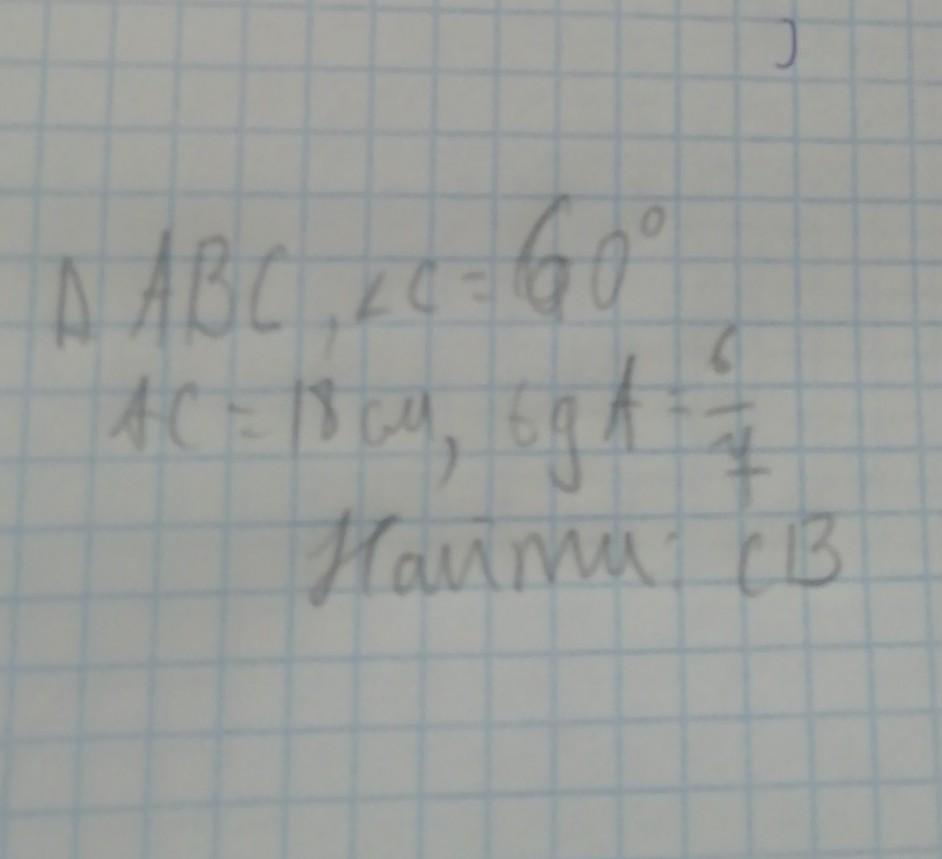 Δ ABC, ∠C = 60°
AC = 18 см, tg A = 6/7
Найти: CB